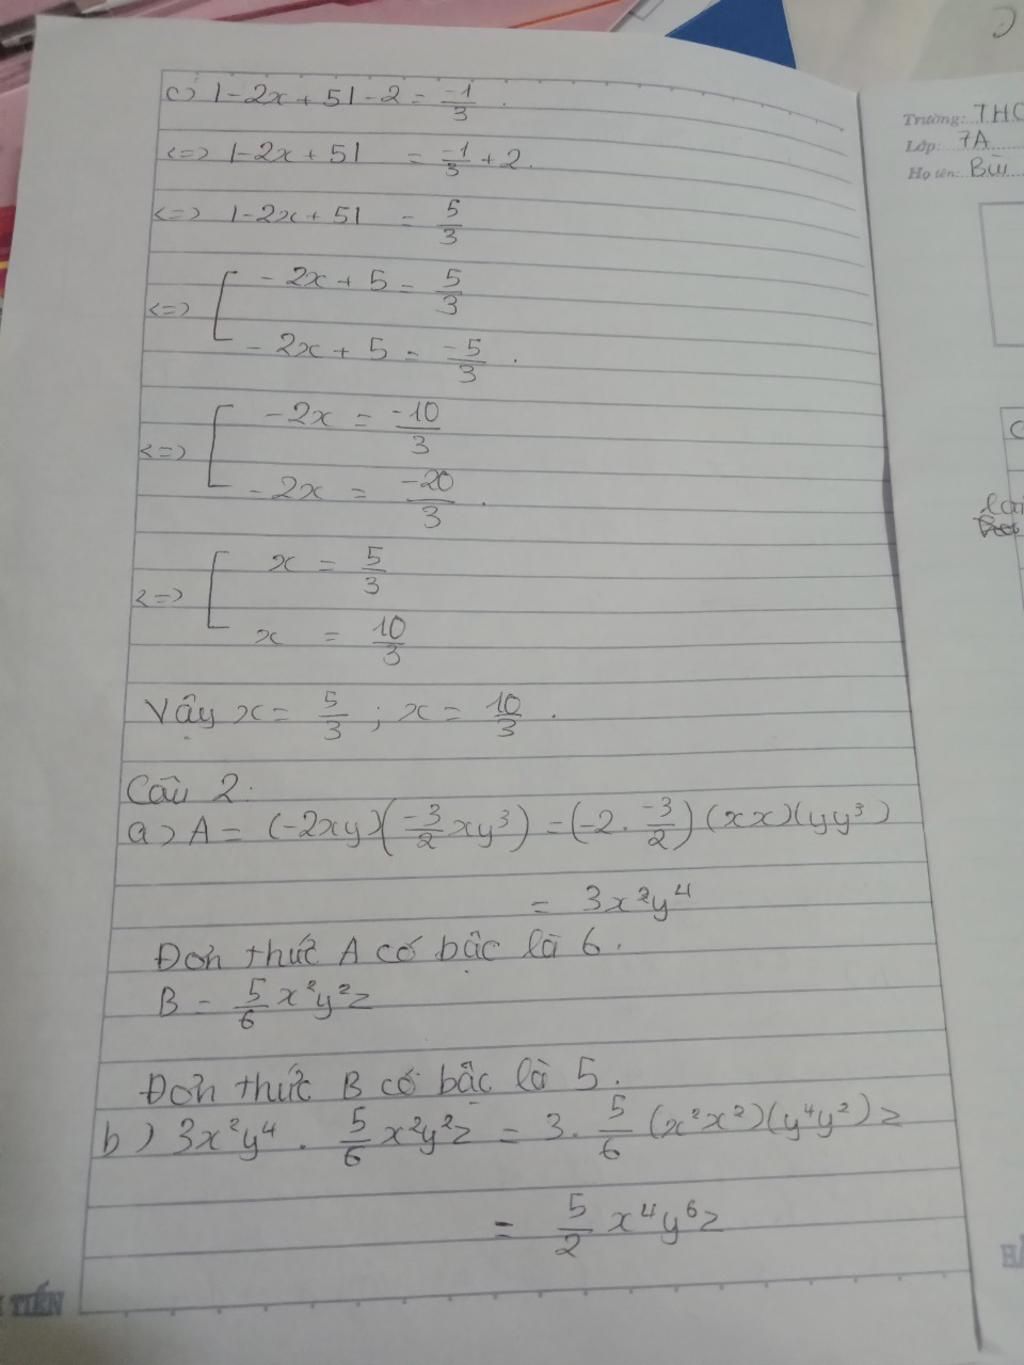 c) |-2x+5|-2 = -1/3.
<=> |-2x+5| = -1/3 + 2.
<=> |-2x+5| = 5/3
<=> [ -2x + 5 = 5/3
-2x + 5 = -5/3.
<=> [ -2x = -10/3
-2x = -20/3.
<=> [ x = 5/3
x = 10/3
Vậy x = 5/3 ; x = 10/3.
Câu 2:
a) A = (-2xy)(-3/2 xy³) = (-2. -3/2)(xx)(yy³)
= 3x²y⁴
Đơn thức A có bậc là 6.
B = 5/6 x²y²z
Đơn thức B có bậc là 5.
b) 3x²y⁴ . 5/6 x²y²z = 3. 5/6 (x²x²)(y⁴y²)z
= 5/2 x⁴y⁶z
TIẾN
Trường: THC
Lớp: 7A
Họ tên: Bùi